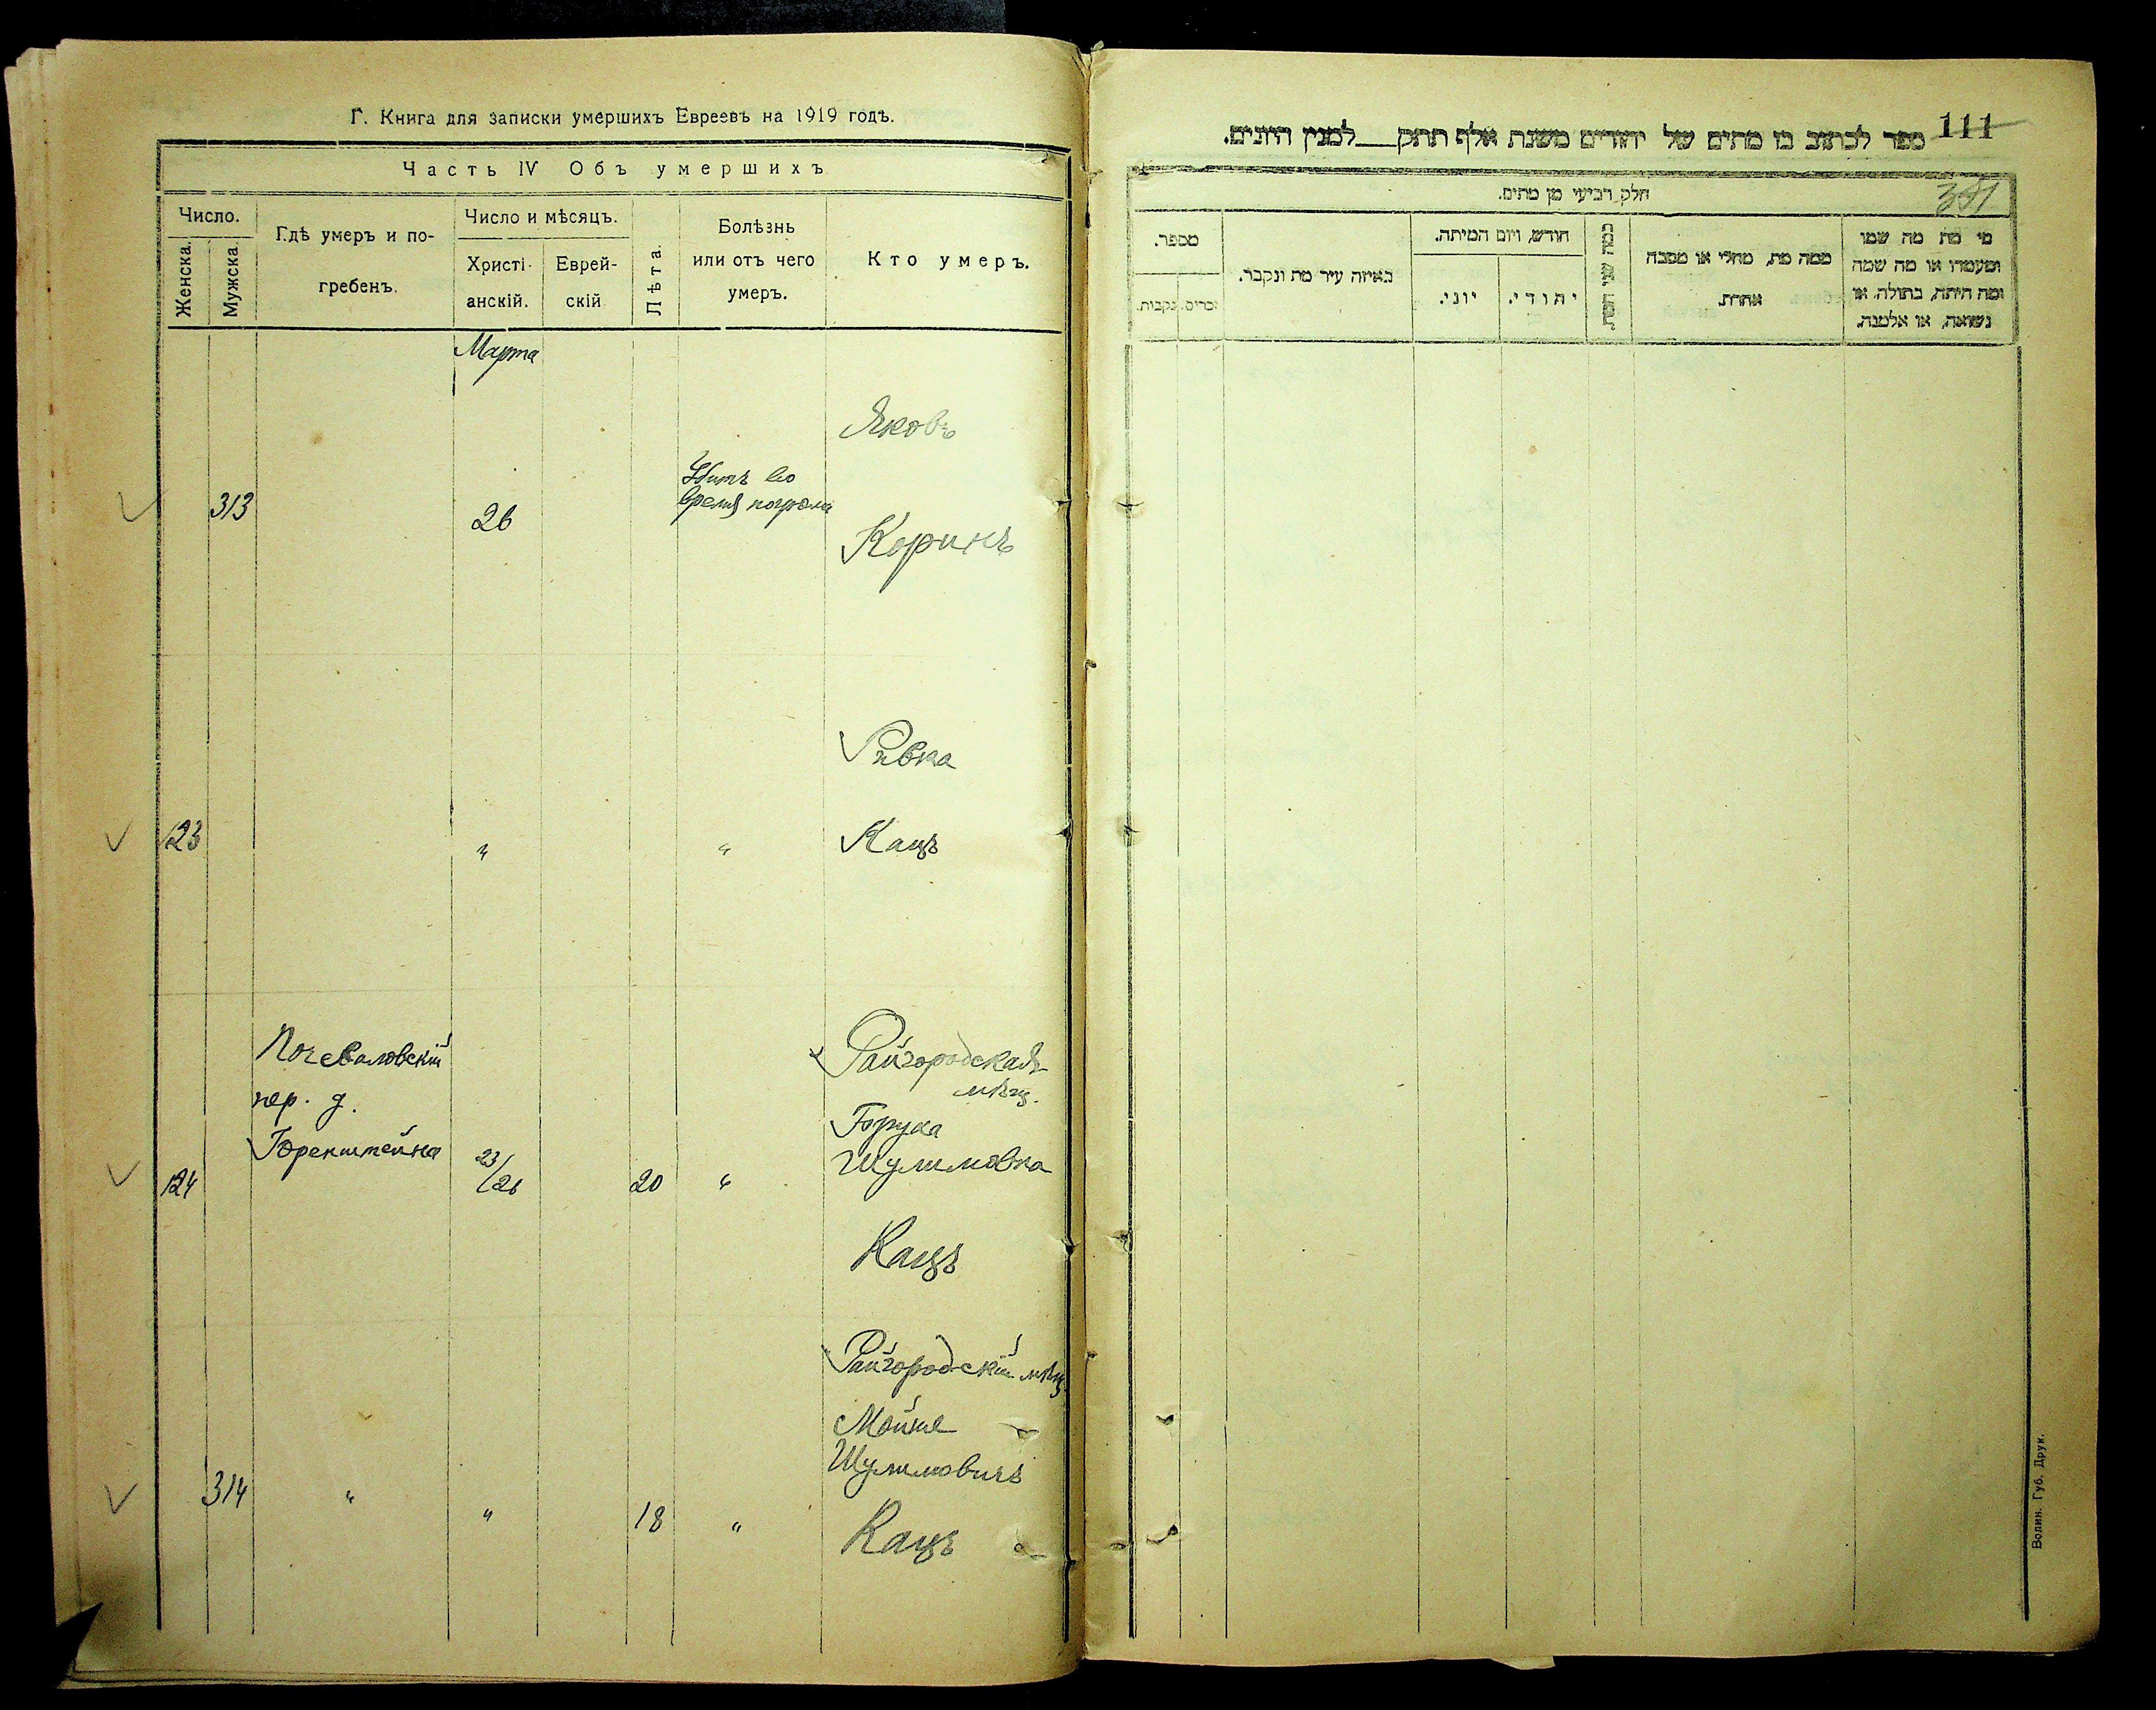 Г. Книга для записки умершихъ Евреевъ на 1919 годъ.
Часть IV Объ умершихъ
Число.
Женска.
Мужска.
Гдѣ умеръ и по-
гребенъ.
Число и мѣсяцъ.
Христі-
анскій.
Еврей-
скій
Лѣта.
Болѣзнь
или отъ чего
умеръ.
Кто умеръ.
Марта
Яковъ
Убитъ во
время погрома
313
26
Коринъ
Ривка
123
"
"
Кацъ
пер. д.
Горенштейна
124
23/26
20
"
Райгородская
мѣщ.
Шулимовна
Кацъ
Райгородскій мѣщ.
Мойше
Шулимовичъ
314
"
"
18
"
Кацъ
111
ספר לכתוב בו מתים של יהודים משנת אלף תתק___למנין היונים.
351
חלק רביעי מן מתים.
מספר.
זכרים.
נקבות.
באיזה עיר מת ונקבר.
חודש, ויום המיתה.
יוני.
יהודי.
ממה מת, מחלי או מסבה
אחרת.
מי מת מה שמו
ומעמדו או מה שמה
ומה היתה, בתולה, או
נשואה, או אלמנה.
Волин. Губ. Друк.